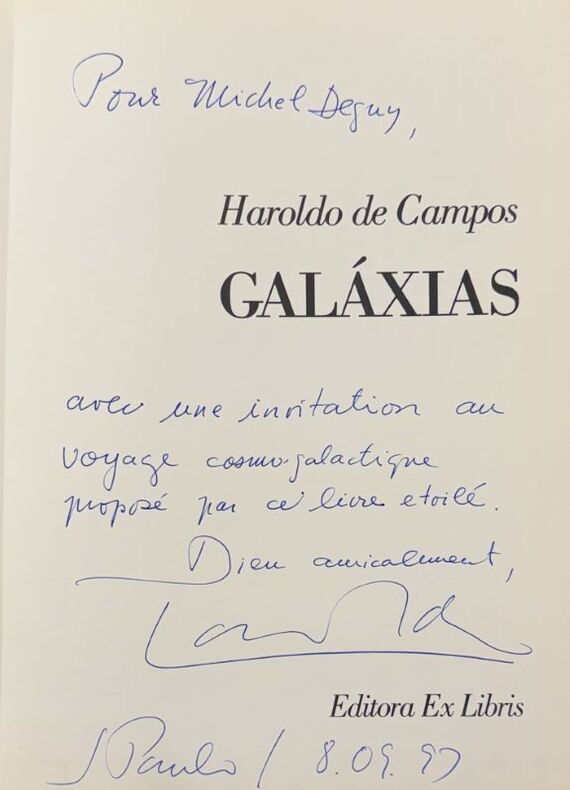 Pour Michel Deguy,
Haroldo de Campos
GALÁXIAS
avec une invitation au
voyage cosmo-galactique
proposé par ce livre etoilé.
Bien amicalement,
Editora Ex Libris
S Paulo / 8.09.97